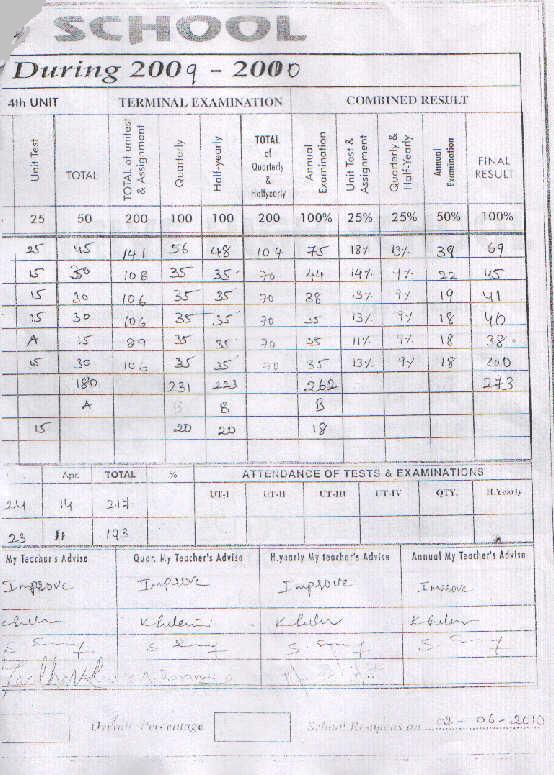 SCHOOL
During 2009 - 2000
4th UNIT TERMINAL EXAMINATION COMBINED RESULT
Unit Test TOTAL TOTAL of unites & Assignment Quarterly Half-yearly TOTAL of Quarterly & Halfyearly Annual Examination Unit Test & Assignment Quarterly & Half-Yearly Annual Examination FINAL RESULT
25 50 200 100 100 200 100% 25% 25% 50% 100%
25 45 141 56 48 104 75 18% 13% 38 69
15 30 108 35 35 70 44 14% 9% 22 45
15 30 106 35 35 70 38 13% 9% 19 41
15 30 106 35 35 70 35 13% 9% 18 40
A 15 89 35 35 70 35 11% 9% 18 38
15 30 106 35 35 70 35 13% 9% 18
180 231 223 262 273
A B B
15 20 20 18
Apr. TOTAL % ATTENDANCE OF TESTS & EXAMINATIONS
UT-I UT-II UT-III UT-IV QTY. H.Yearly
14 217
23 11 193
My Teacher's Advise Quar. My Teacher's Advise H.yearly My teacher's Advise Annual My Teacher's Advise
Improve Improve Improve Improve
Overall Percentage School Reopens on 02-06-2010